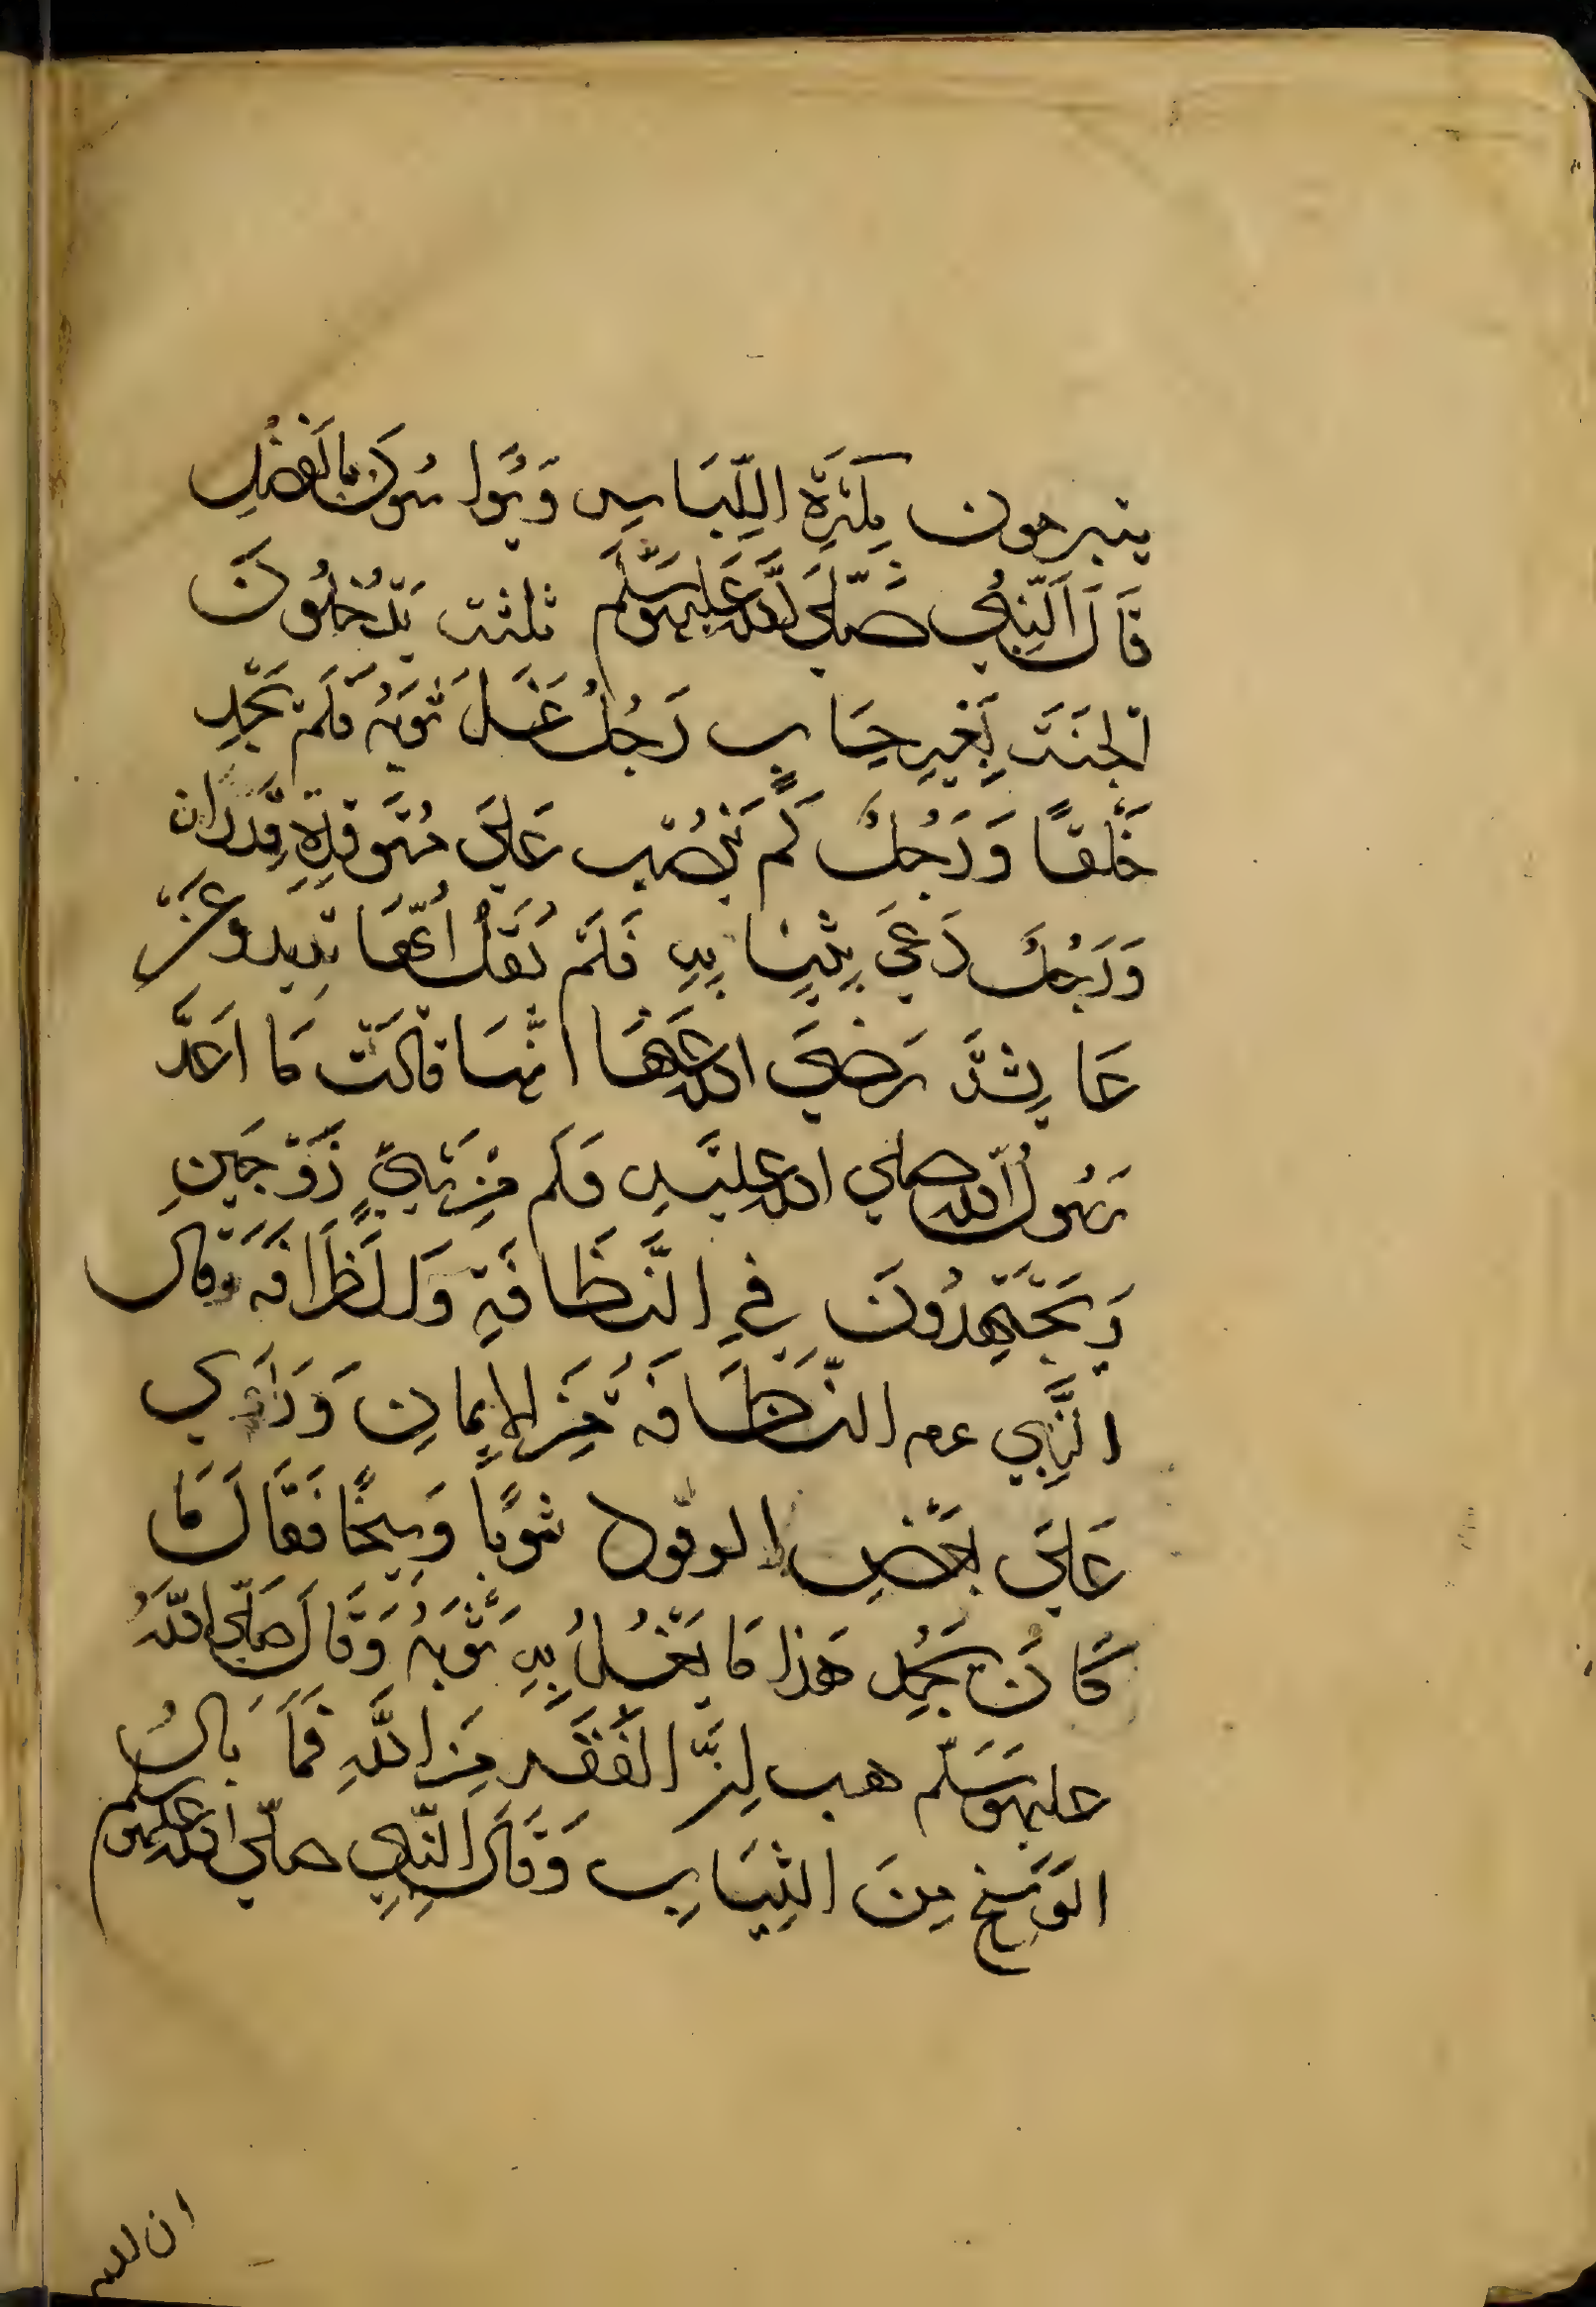 يتبرحون بكثرة اللِّبَاسِ وَيُوا سُون بالفَضْلِ
قَالَ النَّبِيُّ صَلَّي اللّٰهُ عَلَيْهِ وَسَلَّم ثلثت يَدْخُلُونَ
الجنت بِغَيرِ حِسَابٍ رَجُلٌ غَسَلَ ثَوْبَهُ فَلَمْ يَجِدِ
خَلَقًا وَرَجُلٌ لَمْ يَنْصُبْ عَلَي مُسْتَوقِدِهِ قِدْرَان
وَرَجُلٌ دَعَي بِثِيَابِهِ فَلَمْ يَقُلْ اَيُّهَا تريد وعَنْ
عَايِشَةَ رَضِيَ اللّٰه عَنْهَا انَّهَا قَالَتْ مَا اَعَدَّ
رَسُولُ اللّٰه صلي الله عليه وسلم مِنْ شَيٍْ زَوْجَينِ
وَيَجْتَهِدُونَ فِي النَّظَافَةِ وَاللَّظَرَافَةَ وَقَال
النَّبِي عم النَّظَافَةُ مِنَ الاِيمانِ وَرَاَي
عَلَي بَعْضِ الوفود ثَوْبًا وَسِخًا فَقَالَ مَا
كَانَ يَجِدُ هَذا مَا يَغْسُلُ بِهِ ثَوْبَهُ وَقَالَ صَلَّي اللّٰهُ
عليه وَسَلَّم هب لنَّ الفَقْر مِنَ اللّٰهِ فَمَا بَالُ
الوَسَخِ مِنَ الثِّيَابِ وَقَالَ النَّبِي صلّي الله عليه وسلم
ان الله